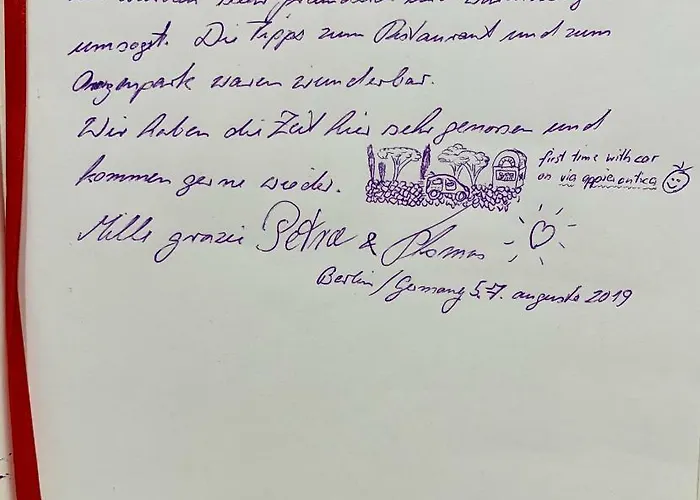 umsorgt. Die Tipps zum Restaurant und zum
Orangenpark waren wunderbar.
Wir haben die Zeit hier sehr genossen und
kommen gerne wieder.
first time with car
on via appia antica
Mille grazie Petra & Thomas
Berlin/Germany 5.-7. augusto 2019